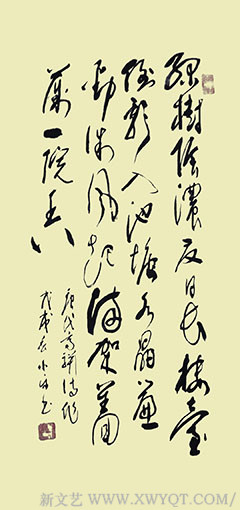 綠樹陰濃夏日长樓臺
倒影入池塘水晶簾
动微风起滿架薔
薇一院香
唐代高駢詩
戊戌
新文艺 WWW.XWYQT.COM/